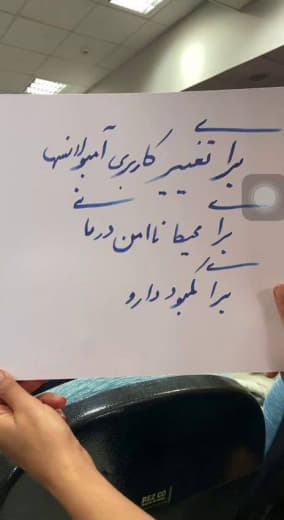 برای تغییر کاربری آمبولانسها
برای محیط ناامن درمانی
برای کمبود دارو
REZCO